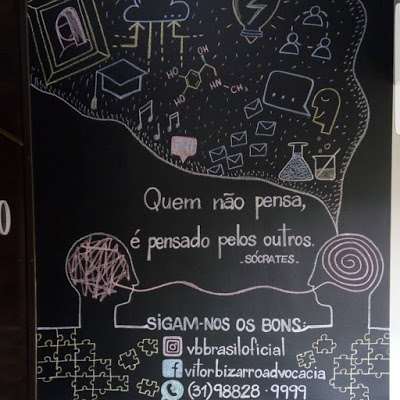 OH
HO
HO
HN
CH₃
Quem não pensa,
é pensado pelos outros.
-SÓCRATES-
SIGAM-NOS OS BONS:
vbbrasiloficial
f vitorbizarroadvocacia
(31) 98828-9999
O